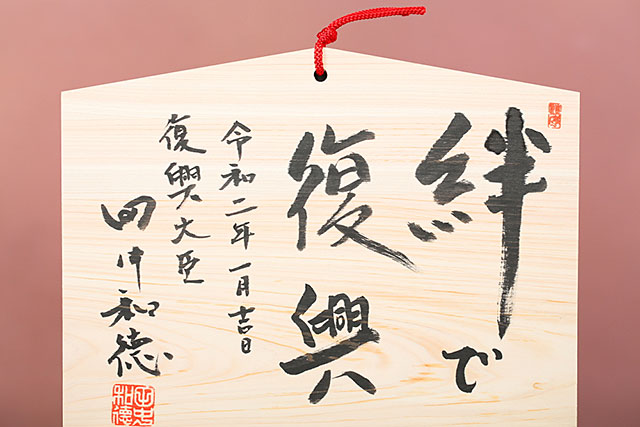 絆で
復興
令和二年一月吉日
復興大臣
田中和徳